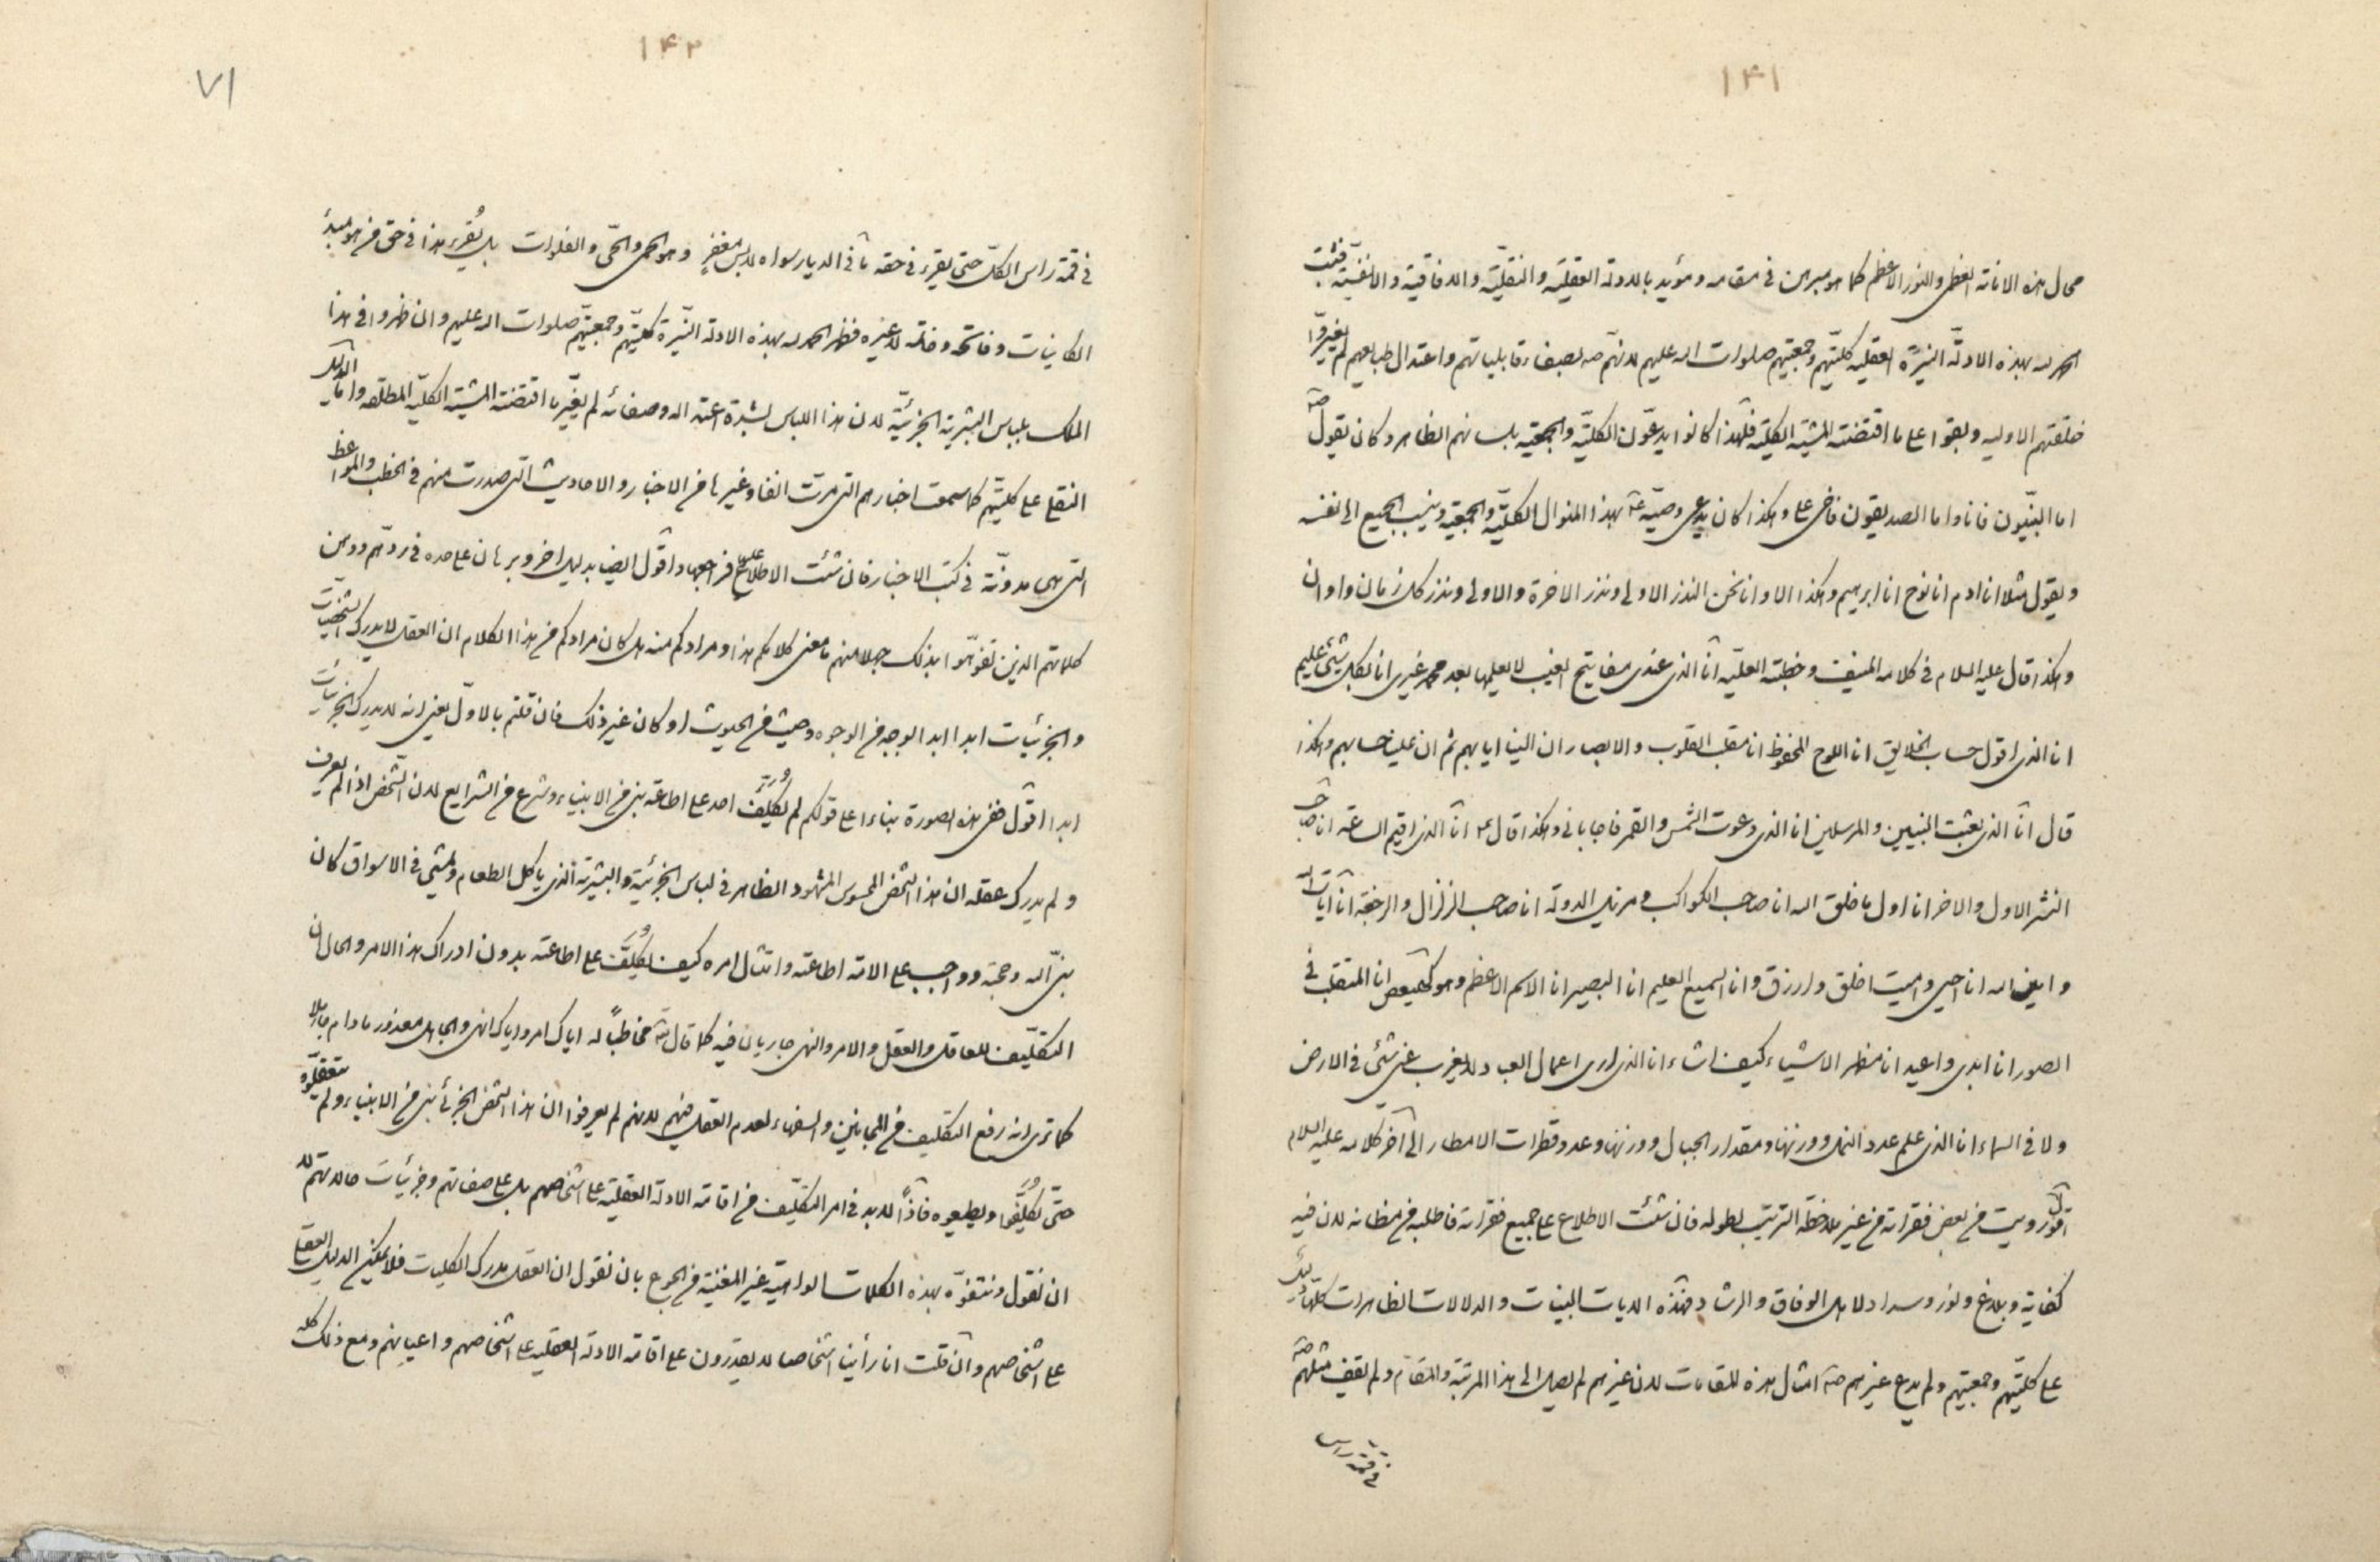 ۱۴۱
محال هذه الامانة العظمى والنور الاعظم كما هو مبرهن فى مقامه ومؤيد بالادلة العقليّة والنقليّة والافاقية والانفسيّة فثبت
الحمد لله بهذه الادلّة النيّرة العقليه كليّتهم وجمعيتهم صلوات الله عليهم لانهم بصفاء قابلياتهم واعتدال طبايعهم لم يغيروا
خلقتهم الاوليه وبقوا على ما اقتضته المشية الكلية فلهذا كانوا يدعّون الكليّة والجمعيّه بلسانهم الظاهر وكان يقول ص
اما النبيّون فانا واما الصديقون فاخى على وهكذا كان يدعى وصيّه ع بهذا المنوال الكليّة والجمعيّة وينسب الجميع الى نفسه
ويقول مثلا انا ادم انا نوح انا ابرهيم وهكذا الا وانا نحن النذر الاولى ونذر الاخرة والاولى ونذر كل زمان واوان
وهكذا قال عليه السلام فى كلامه المنيف وخطبته العليّه انا الذى عندى مفاتيح الغيب لا يعلمها بعد محمد غيرى انا بكل شئ عليم
انا الذى اقول حساب الخلايق انا اللوح المحفوظ انا مقلب القلوب والابصار ان الينا ايابهم ثم ان علينا حسابهم وهكذا
قال انا الذى بعثت النبيين والمرسلين انا الذى دعوت الشمس والقمر فاجابانى وهكذا قال ع انا الذى اقيم الساعة انا صاحب
النشر الاول والاخر انا اول ما خلق الله انا صاحب الكواكب ومزيل الدولة انا صاحب الزلزال والرجفة انا آيات الله
وامين الله انا احيى واميت اخلق وارزق وانا السميع العليم انا البصير انا الاسم الاعظم وهو كهيعص انا المتقلب فى
الصور انا ابدى واعيد انا مظهر الاشياء كيف اشاء انا الذى ارى اعمال العباد لا يعزب عنى شئ فى الارض
ولا فى السماء انا الذى علم عدد النمل ووزنها ومقدار الجبال ووزنها وعدد قطرات الامطار الى آخر كلامه عليه السلام
اقول رويت من بعض فقراته من غير ملاحظة الترتيب لطوله فان شئت الاطلاع على جميع فقراته فاطلبه من مظانه لان فيه
كفاية وبلاغ ونور وسداد لاهل الوفاق والرشاد فهذه الايات البينات والدلالات الظاهرات كلها دليل
على كليّتهم وجمعيتهم ولم يدع غيرهم ص امثال هذه المقامات لان غيرهم لم يصل الى هذا المرتبة والمقام ولم يقف مثلهم ص
فى قمّة راس
۱۴۲
۷۱
فى قمة راس الكلّ حتى يقرء فى حقه ما فى الديار سواه لابس مغفر وهو الحمى والحىّ والفلوات بل يُقرء هذا فى حق من هو مبدء
الكاينات وفاتحه وخاتمه لا غيره فظهر الحمد لله بهذه الادلة النيّرة كليّتهم وجمعيتهم صلوات الله عليهم وان ظهروا فى هذا
الملك بلباس البشرية الجزئيّة لان هذا اللباس لشدة اعتداله وصفائه لم يغيّر ما اقتضته المشية الكليّه المطلقه واما الدليل
النقلى على كليتهم كما سمعت اخبارهم التى مرّت انفا وغيرها من الاخبار والاحاديث التى صدرت منهم فى الخطب والمواعظ
التى هى مدونّة فى كتب الاخبار فان شئت الاطلاع عليها فراجعها واقول ايضا بدليل اخر وبرهان على حده فى ردّهم ووهن
كلماتهم الذين تفوّهوا بذلك جهلا منهم ما معنى كلامكم هذا ومرادكم منه هل كان مرادكم من هذا الكلام ان العقل لا يدرك الشخصيات
والجزئيات ابدا ابدا لوجه من الوجوه وحيث من الحيوث او كان غير ذلك فان قلتم بالاول يعنى انه لا يدرك الجزئيات
ابدا اقول ففى هذه الصورة بناءا على قولكم لم يُكلّف احد على اطاعة نبى من الانبياء وشرع من الشرايع لان الشخص اذا لم يعرف
ولم يدرك عقله ان هذا الشخص المحسوس المشهود الظاهر فى لباس الجزئية والبشرية الذى ياكل الطعام ويمشى فى الاسواق كان
نبىّ الله وحجته وواجب على الامة اطاعته وامتثال امره كيف يُكلّف على اطاعته بدون ادراك هذا الامر والحال ان
التكليف للعاقل والعقل والامر والنهى جاريان فيه كما قال الله مخاطباً له اياك امر واياك انهى والجاهل معذور مادام جاهلا
كما ترى انه رفع التكليف من المجانين والسفهاء لعدم العقل فيهم لانهم لم يعرفوا ان هذا الشخص الجزئى نبى من الانبياء ولم يتعقلوه
حتّى يُكلّفوا ويطيعوه فاذاً لابد فى امر التكليف من اقامة الادلة العقليّة على اشخاصهم بل على صفاتهم وجزئيات حالاتهم لا
ان نقول ونتفوّه بهذه الكلمات الواهيّة غير المغنية من الجوع بان نقول ان العقل مدرك الكليات فلا يمكن الدليل العقلى
على اشخاصهم وان قلت انا رأينا اشخاصا لا يقدرون على اقامة الادلة العقليه على اشخاصهم واعيانهم ومع ذلك كله